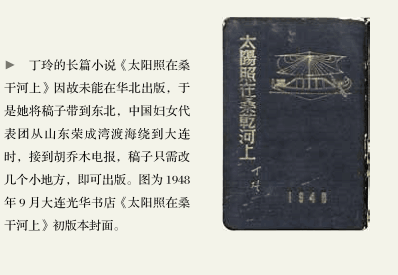 ▶ 丁玲的长篇小说《太阳照在桑
干河上》因故未能在华北出版，于
是她将稿子带到东北，中国妇女代
表团从山东荣成湾渡海绕到大连
时，接到胡乔木电报，稿子只需改
几个小地方，即可出版。图为 1948
年 9 月大连光华书店《太阳照在桑
干河上》初版本封面。
太陽照在桑乾河上
丁玲
1948